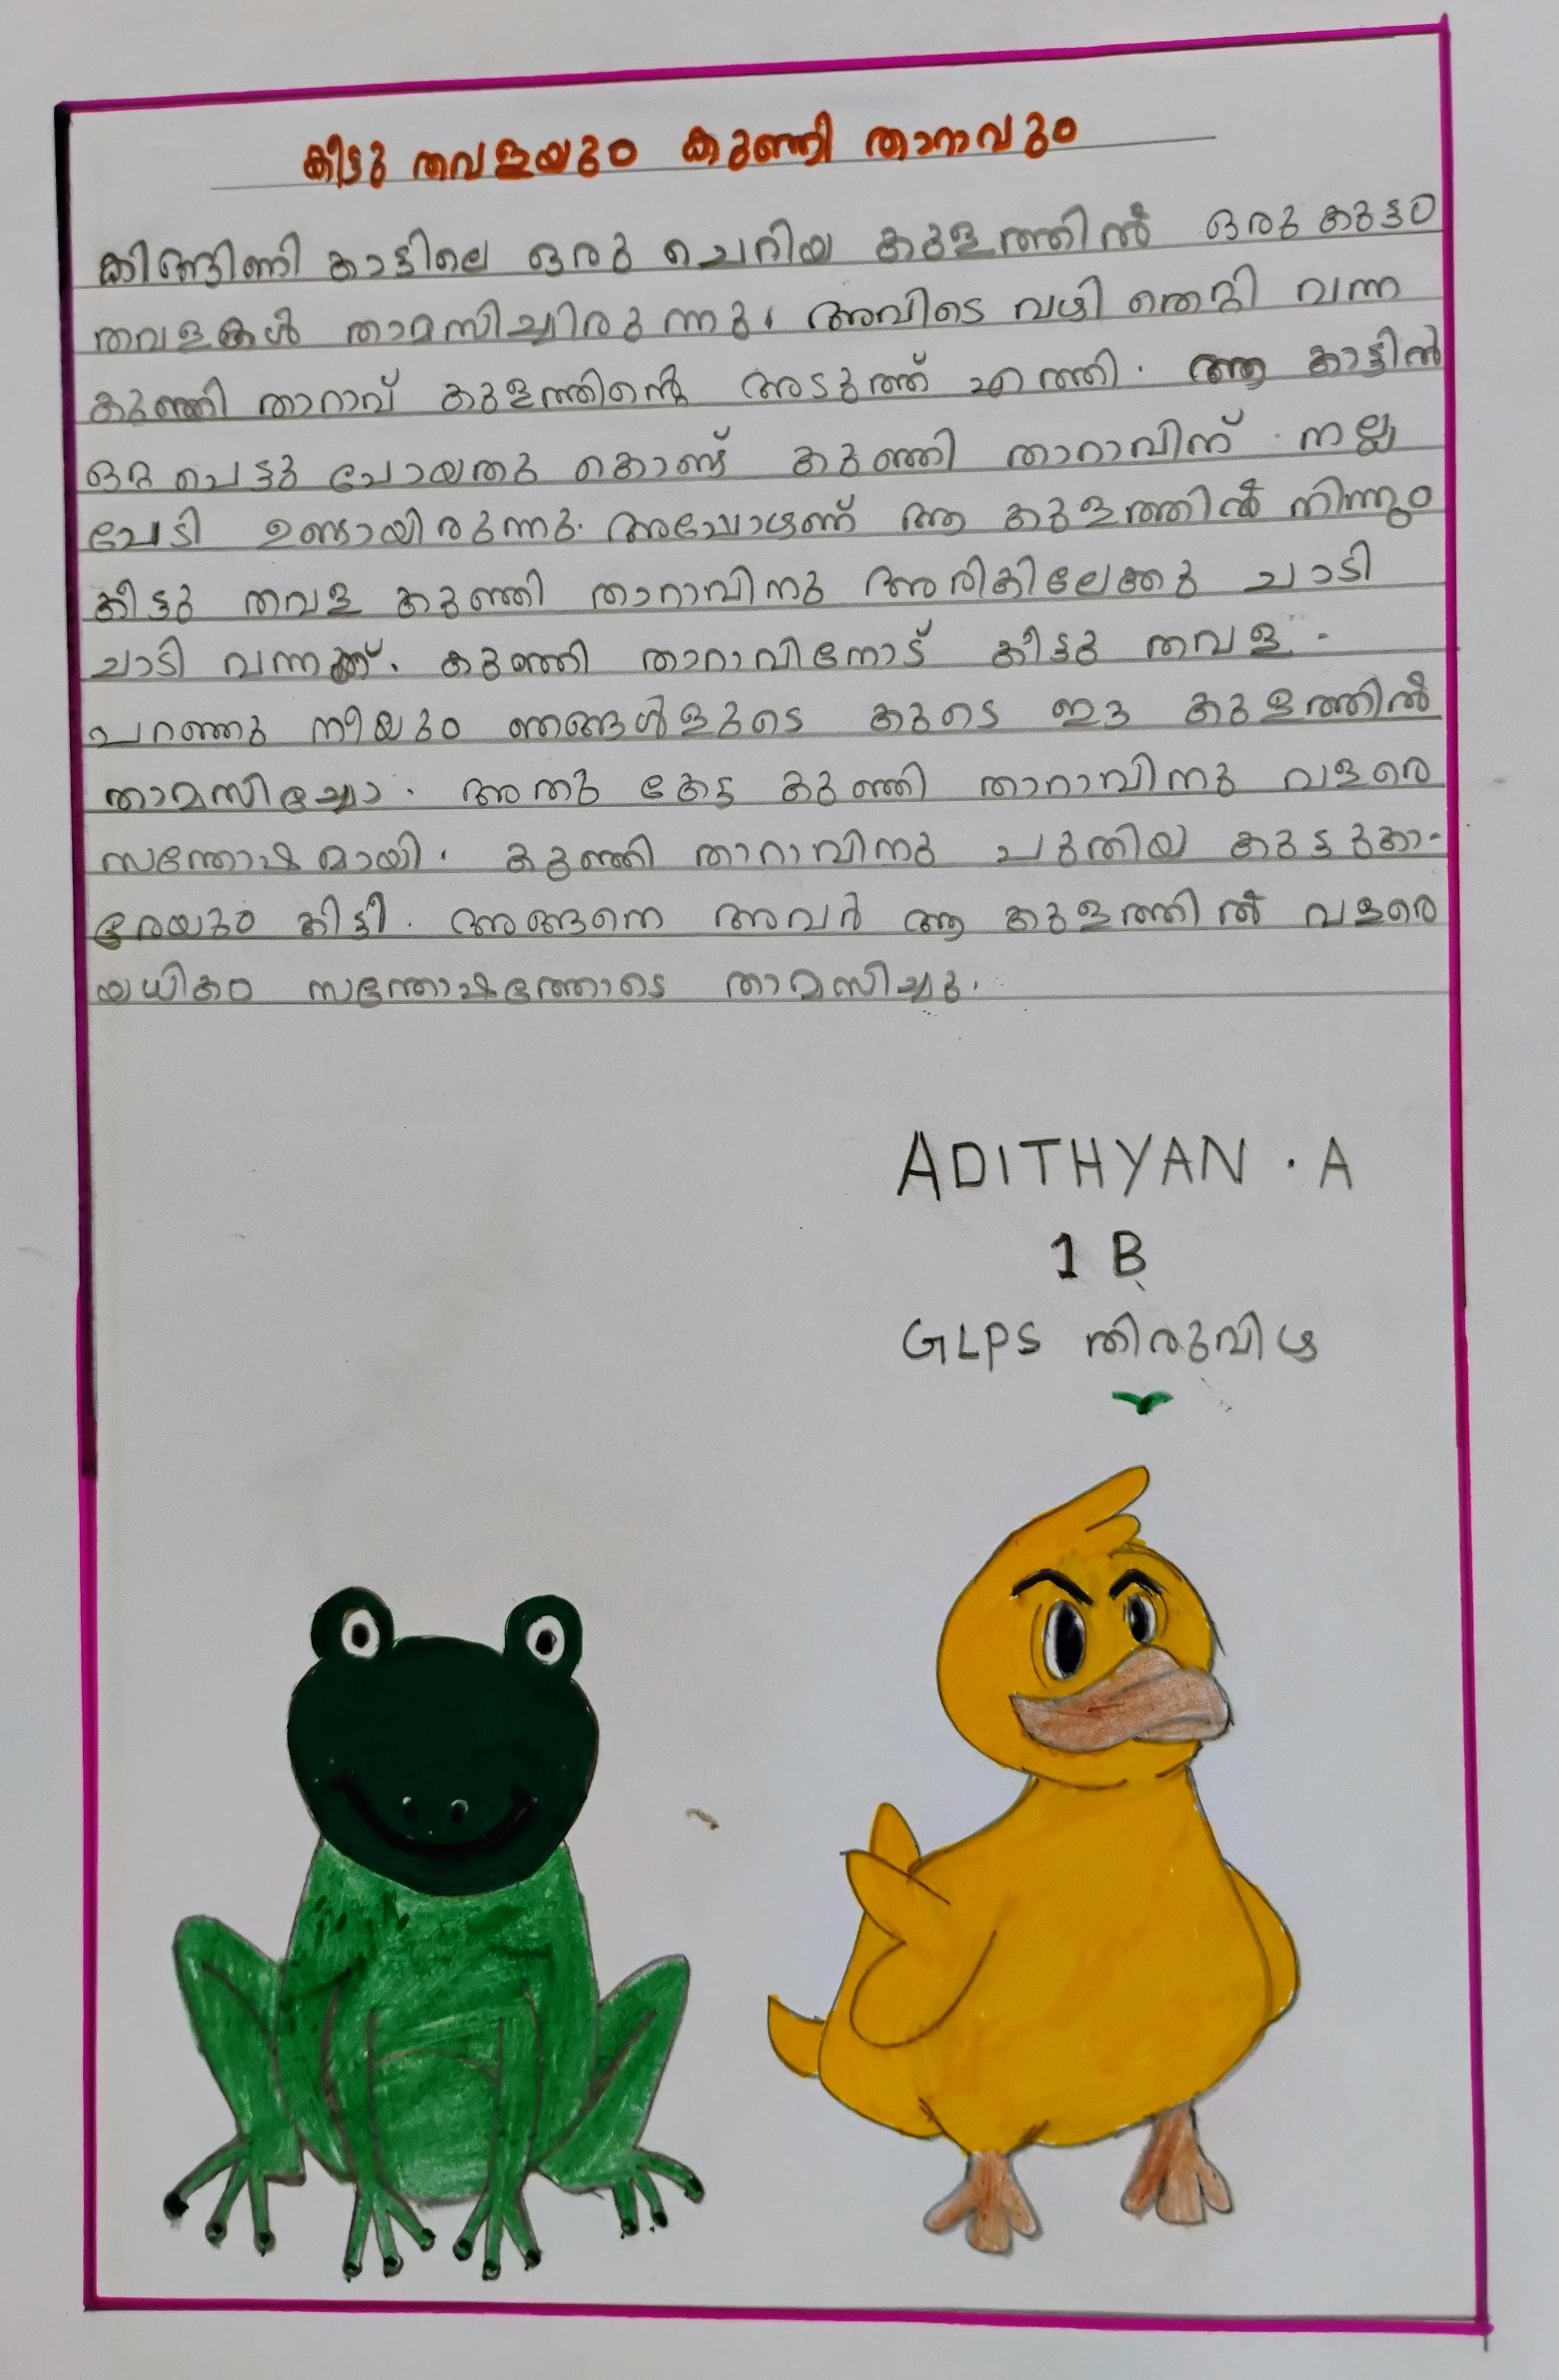 കിട്ടു തവളയും കുഞ്ഞി താറാവും
കിങ്ങിണി കാട്ടിലെ ഒരു ചെറിയ കുളത്തിൽ ഒരു കുട്ടം
തവളകൾ താമസിച്ചിരുന്നു. അവിടെ വഴി തെറ്റി വന്ന
കുഞ്ഞി താറാവ് കുളത്തിന്റെ അടുത്ത് എത്തി. ആ കാട്ടിൽ
ഒറ്റ പെട്ടു പോയതു കൊണ്ട് കുഞ്ഞി താറാവിന് നല്ല
പേടി ഉണ്ടായിരുന്നു. അപ്പോഴാണ് ആ കുളത്തിൽ നിന്നും
കിട്ടു തവള കുഞ്ഞി താറാവിനു അരികിലേക്കു ചാടി
ചാടി വന്നത്. കുഞ്ഞി താറാവിനോട് കിട്ടു തവള
പറഞ്ഞു നീയും ഞങ്ങൾളുടെ കുടെ ഈ കുളത്തിൽ
താമസിച്ചോ. അതു കേട്ട കുഞ്ഞി താറാവിനു വളരെ
സന്തോഷമായി. കുഞ്ഞി താറാവിനു പുതിയ കുട്ടുകാ-
രേയും കിട്ടി. അങ്ങനെ അവർ ആ കുളത്തിൽ വളരെ
യധികം സന്തോഷത്തോടെ താമസിച്ചു.
ADITHYAN . A
1 B
GLPS തിരുവിഴ